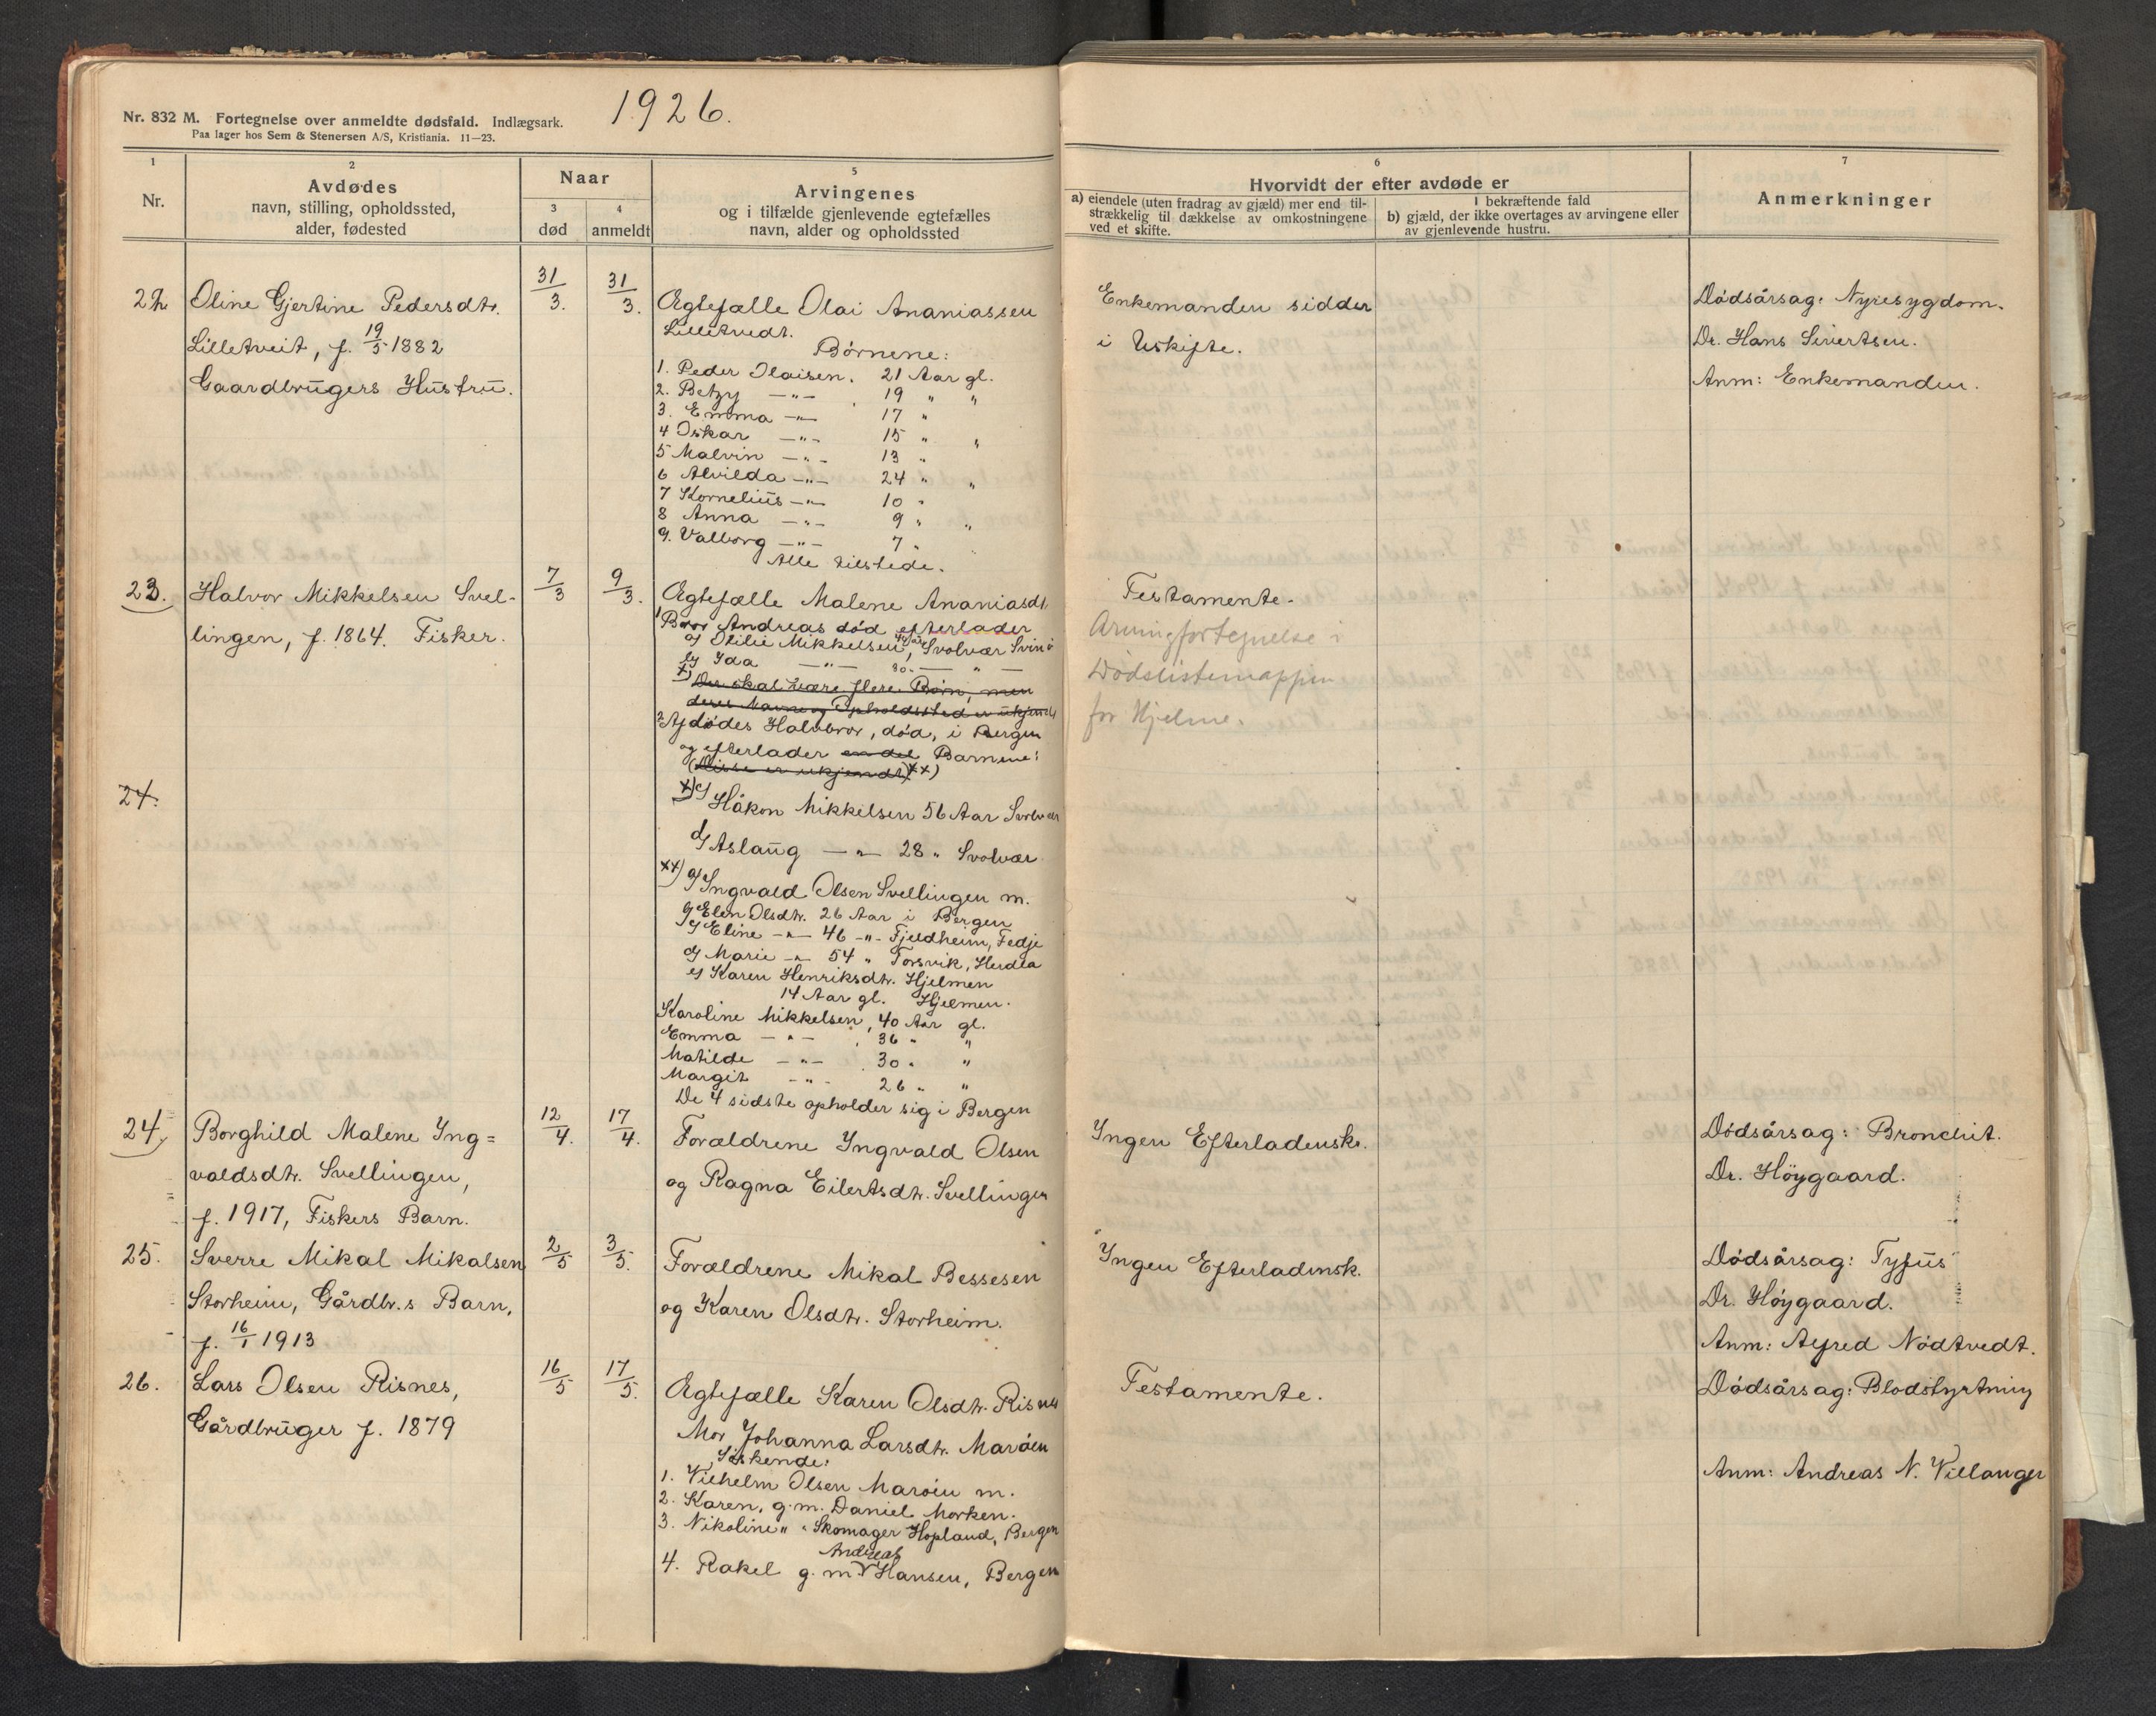 Nr. 832 M. Fortegnelse over anmeldte dødsfald. Indlægsark.
Paa lager hos Sem & Stenersen A/S, Kristiania. 11—23.
1926.
1
Nr.
2
Avdødes
navn, stilling, opholdssted,
alder, fødested
Naar
3
død
4
anmeldt
5
Arvingenes
og i tilfælde gjenlevende egtefælles
navn, alder og opholdssted
6
Hvorvidt der efter avdøde er
a) eiendele (uten fradrag av gjæld) mer end til-
strækkelig til dækkelse av omkostningene
ved et skifte.
I bekræftende fald
b) gjæld, der ikke overtages av arvingene eller
av gjenlevende hustru.
7
Anmerkninger
22
Oline Gjertine Pedersdtr.
Lilletveit, f. 19/5 1882
Gaardbrugers Hustru.
31/3.
31/3.
Ægtefælle Olai Ananiassen
Lilletvedt.
Børnene:
1. Peder Olaisen. 21 Aar gl.
2. Betzy —"— 19 " "
3. Emma —"— 17 "
4 Oskar —"— 15 " "
5 Malvin —"— 13 "
6 Alvilda —"— 24 " "
7 Kornelius —"— 10 "
8 Anna —"— 9 " "
9. Valborg —"— 7 "
Alle tilstede.
Enkemanden sidder
i Uskifte.
Dødsårsag: Nyresygdom.
Dr. Hans Sivertsen.
Anm: Enkemanden.
23.
Halvor Mikkelsen Svel-
lingen, f. 1864. Fisker.
7/3
9/3.
Ægtefælle Malene Ananiasdt.
1 Bror Andreas død efterlader
a) Otilie Mikkelsen, Svolvær
b) Ida —"— 30 — " —
x) Der skal være flere Børn, men
deres Navne og Opholdssted er ukjendt
2 Afdødes Halvbror, død, i Bergen
og efterlader en del Barnene:
(Disse er ukjendt) xx)
x) c) Håkon Mikkelsen 56 Aar Svolvær
d) Aslaug —"— 28 " Svolvær
xx) a) Ingvald Olsen Svellingen m.
b) Elen Olsdtr. 26 Aar i Bergen
c) Eline —"— 46 —"— Fjeldheim, Fedje
d) Marie —"— 54 " Torsvik, Herdla
e) Karen Henriksdtr. Hjelmen
14 Aar gl. Hjelmen.
Karoline Mikkelsen, 40 Aar gl.
Emma —"— 36 " "
Matilde —"— 30 " "
Margit —"— 26 " "
De 4 sidste opholder sig i Bergen
Testamente.
Arvingfortegnelse i
Dødslistemappen
for Hjelme.
24.
24
Borghild Malene Yng=
valdsdtr. Svellingen,
f. 1917, Fiskers Barn.
12/4.
17/4.
Forældrene Yngvald Olsen
og Ragna Eilertsdtr. Svellingen
Ingen Efterladensk.
Dødsårsag: Bronchit.
Dr. Höygaard.
25.
Sverre Mikal Mikalsen
Storheim, Gårdbr.s Barn,
f. 16/1 1913
2/5
3/5.
Forældrene Mikal Bessesen
og Karen Olsdtr. Storheim.
Ingen Efterladensk.
Dødsårsag: Tyfus
Dr. Höygaard.
Anm: Alfred Nødtvedt.
26.
Lars Olsen Risnes,
Gårdbruger f. 1879
16/5
17/5.
Ægtefælle Karen Olsdtr. Risnes
Mor Johanna Larsdtr. Marøen
Søskende:
1. Vilhelm Olsen Marøen m.
2. Karen, g. m. Daniel Morken.
3. Nikoline " " Skomager Hopland, Bergen
Andreas
4. Rakel g. m. Hansen, Bergen
Testamente.
Dødsårsag: Blodstyrtning
Anm: Andreas N. Villanger